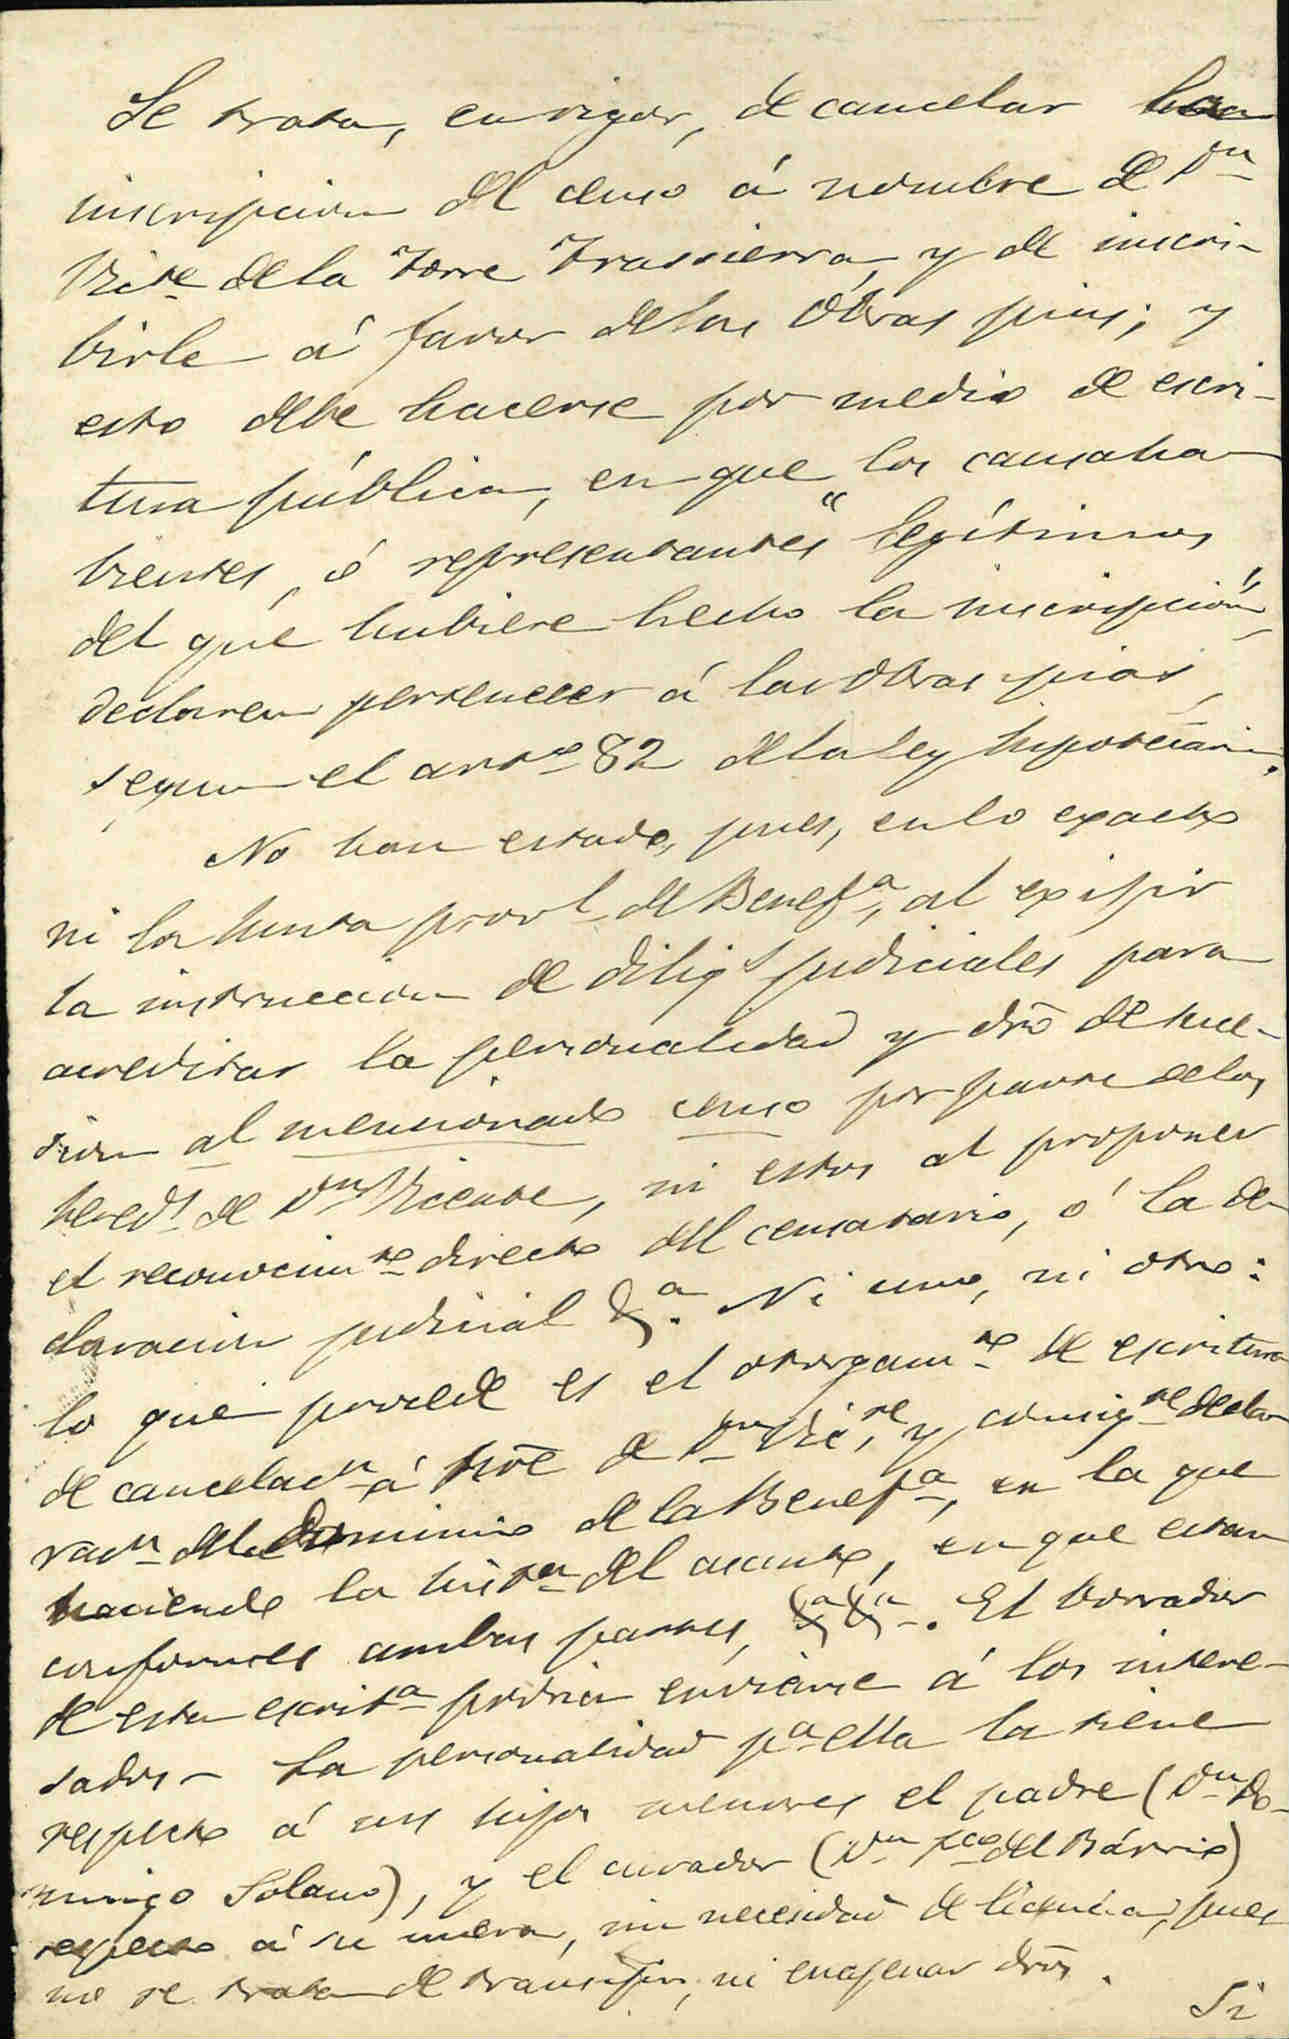 Se trata, en rigor, de cancelar la
inscripcion del censo á nombre de Dn
Victe de la Torre Trassierra, y de inscri-
birle á favor de las Obras pias; y
esto debe hacerse por medio de escri-
tura pública, en que "los causaha-
bientes, ó representantes legítimos
del que hubiere hecho la inscripción",
declaren pertenecer á las Obras pias,
segun el arto 82 de la ley hipotecaria.
No han estado, pues, en lo exacto
ni la Junta provl de Benefa, al exigir
la instruccion de diligs judiciales para
acreditar la personalidad y dro de suce-
sion al mencionado censo por parte de los
hereds de Dn Vicente, ni estos al proponer
el reconocimto directo del censatario, ó la de-
claracion judicial &a. Ni uno, ni otro:
lo que procede es el otorgamto de escritura
de cancelacn á nōe de Dn Victe, y consigte decla-
racn del dominio de la Benefa, en la que
haciendo la hista del asunto, en que estan
conformes ambas partes, &a &a. El borrador
de esta escrita podria enviarse á los intere-
sados - La personalidad pa ella la tiene
respecto á sus hijos menores el padre (Dn Do-
mingo Solano), y el curador (Dn Fco del Bárrio)
respecto á su nuera, sin necesidad de licencia, pues
no se trata de transigir, ni enagenar drōs.
Si